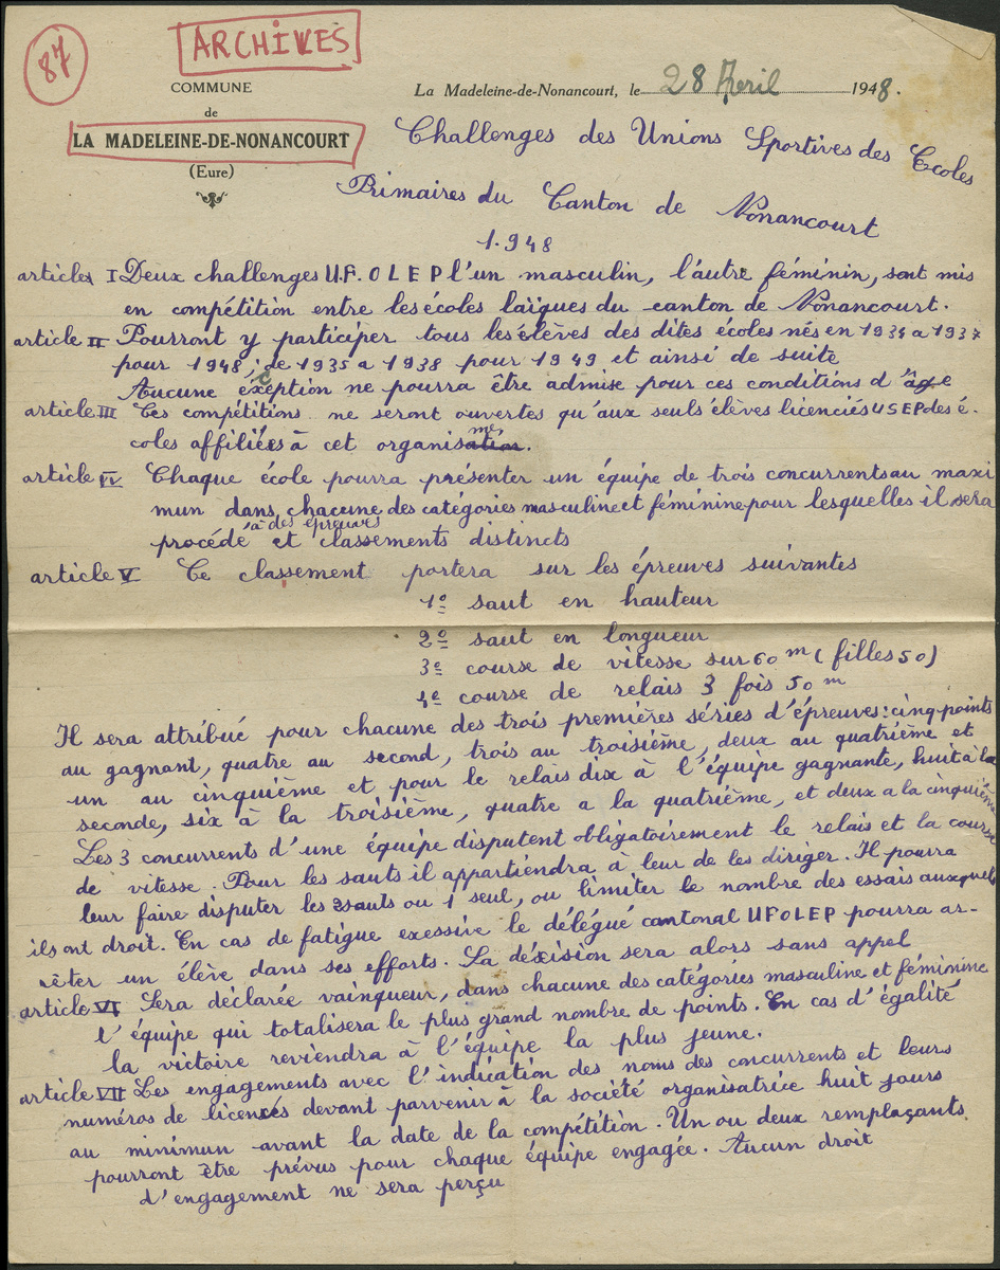 87
ARCHIVES
COMMUNE
de
LA MADELEINE-DE-NONANCOURT
(Eure)
La Madeleine-de-Nonancourt, le 28 Avril 1948.
Challenges des Unions Sportives des Ecoles
Primaires du Canton de Nonancourt
1.948
article I Deux challenges U.F.OLEP l'un masculin, l'autre féminin, sont mis
en compétition entre les écoles laïques du canton de Nonancourt.
article II Pourront y participer tous les élèves des dites écoles nés en 1934 a 1937
pour 1948, de 1935 a 1938 pour 1949 et ainsi de suite
Aucune exception ne pourra être admise pour ces conditions d'âge
article III Ces compétitions ne seront ouvertes qu'aux seuls élèves licenciés USEP des é-
coles affiliées à cet organisme.
article IV Chaque école pourra présenter un équipe de trois concurrents au maxi
mun dans chacune des catégories masculine et féminine pour lesquelles il sera
procédé à des épreuves et classements distincts
article V Ce classement portera sur les épreuves suivantes
1º saut en hauteur
2º saut en longueur
3º course de vitesse sur 60 m (filles 50)
4º course de relais 3 fois 50 m
Il sera attribué pour chacune des trois premières séries d'épreuves: cinq points
au gagnant, quatre au second, trois au troisième, deux au quatrième et
un au cinquième et pour le relais dix à l'équipe gagnante, huit à la
seconde, six à la troisième, quatre a la quatrième, et deux a la cinquième
Les 3 concurrents d'une équipe disputent obligatoirement le relais et la course
de vitesse. Pour les sauts il appartiendra à leur de les diriger. Il pourra
leur faire disputer les 2 sauts ou 1 seul, ou limiter le nombre des essais auxquels
ils ont droit. En cas de fatigue exessive le délégué cantonal UFOLEP pourra ar-
rêter un élève dans ses efforts. Sa déxision sera alors sans appel
article VI Sera déclarée vainqueur, dans chacune des catégories masculine et féminine
l'équipe qui totalisera le plus grand nombre de points. En cas d'égalité
la victoire reviendra à l'équipe la plus jeune.
article VII Les engagements avec l'indication des noms des concurrents et leurs
numéros de licenciés devant parvenir à la société organisatrice huit jours
au minimun avant la date de la compétition. Un ou deux remplaçants
pourront être prévus pour chaque équipe engagée. Aucun droit
d'engagement ne sera perçu